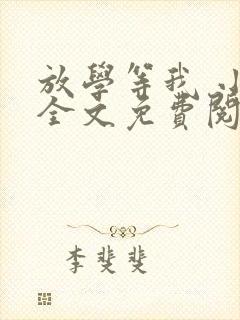 放學等我 小
全文免費閱
李斐斐